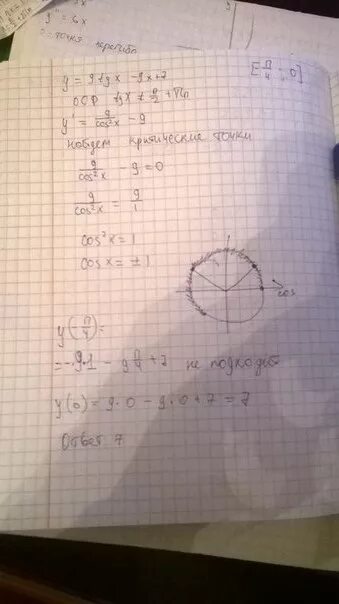 y'' = 6x
= точка перегиба
y = 9tgx - 9x + 7 [π/4 ; 0]
ООФ tgx ≠ π/2 + πn
y' = 9/cos²x - 9
найдем критические точки
9/cos²x - 9 = 0
9/cos²x = 9/1
cos²x = 1
cosx = ±1
cos
y(-π/4) =
= -9·1 - 9π/4 + 7 не подходит
y(0) = 9·0 - 9·0 + 7 = 7
Ответ 7